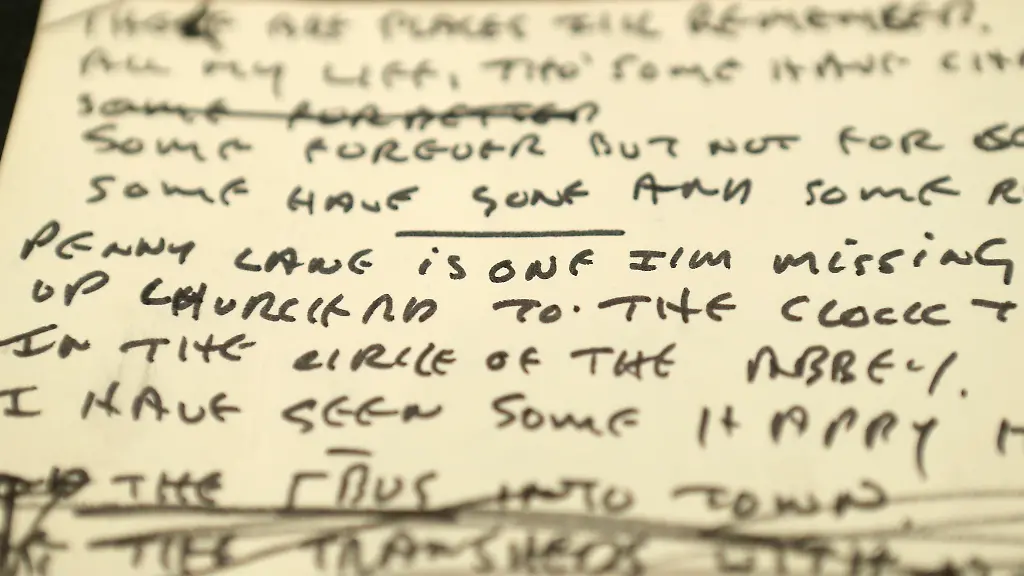 THERE ARE PLACES I'LL REMEMBER.
ALL MY LIFE, THO' SOME HAVE
SOME FOR BETTER
SOME FOREVER BUT NOT FOR
SOME HAVE GONE AND SOME
PENNY LANE is ONE I'M missiNG
UP CHURCH RD TO. THE CLOCK T
IN THE CIRCLE OF THE ABBEY.
I HAVE SEEN SOME HAPPY H
THE BUS INTO TOWN
THE TRAMSHEDS WITH